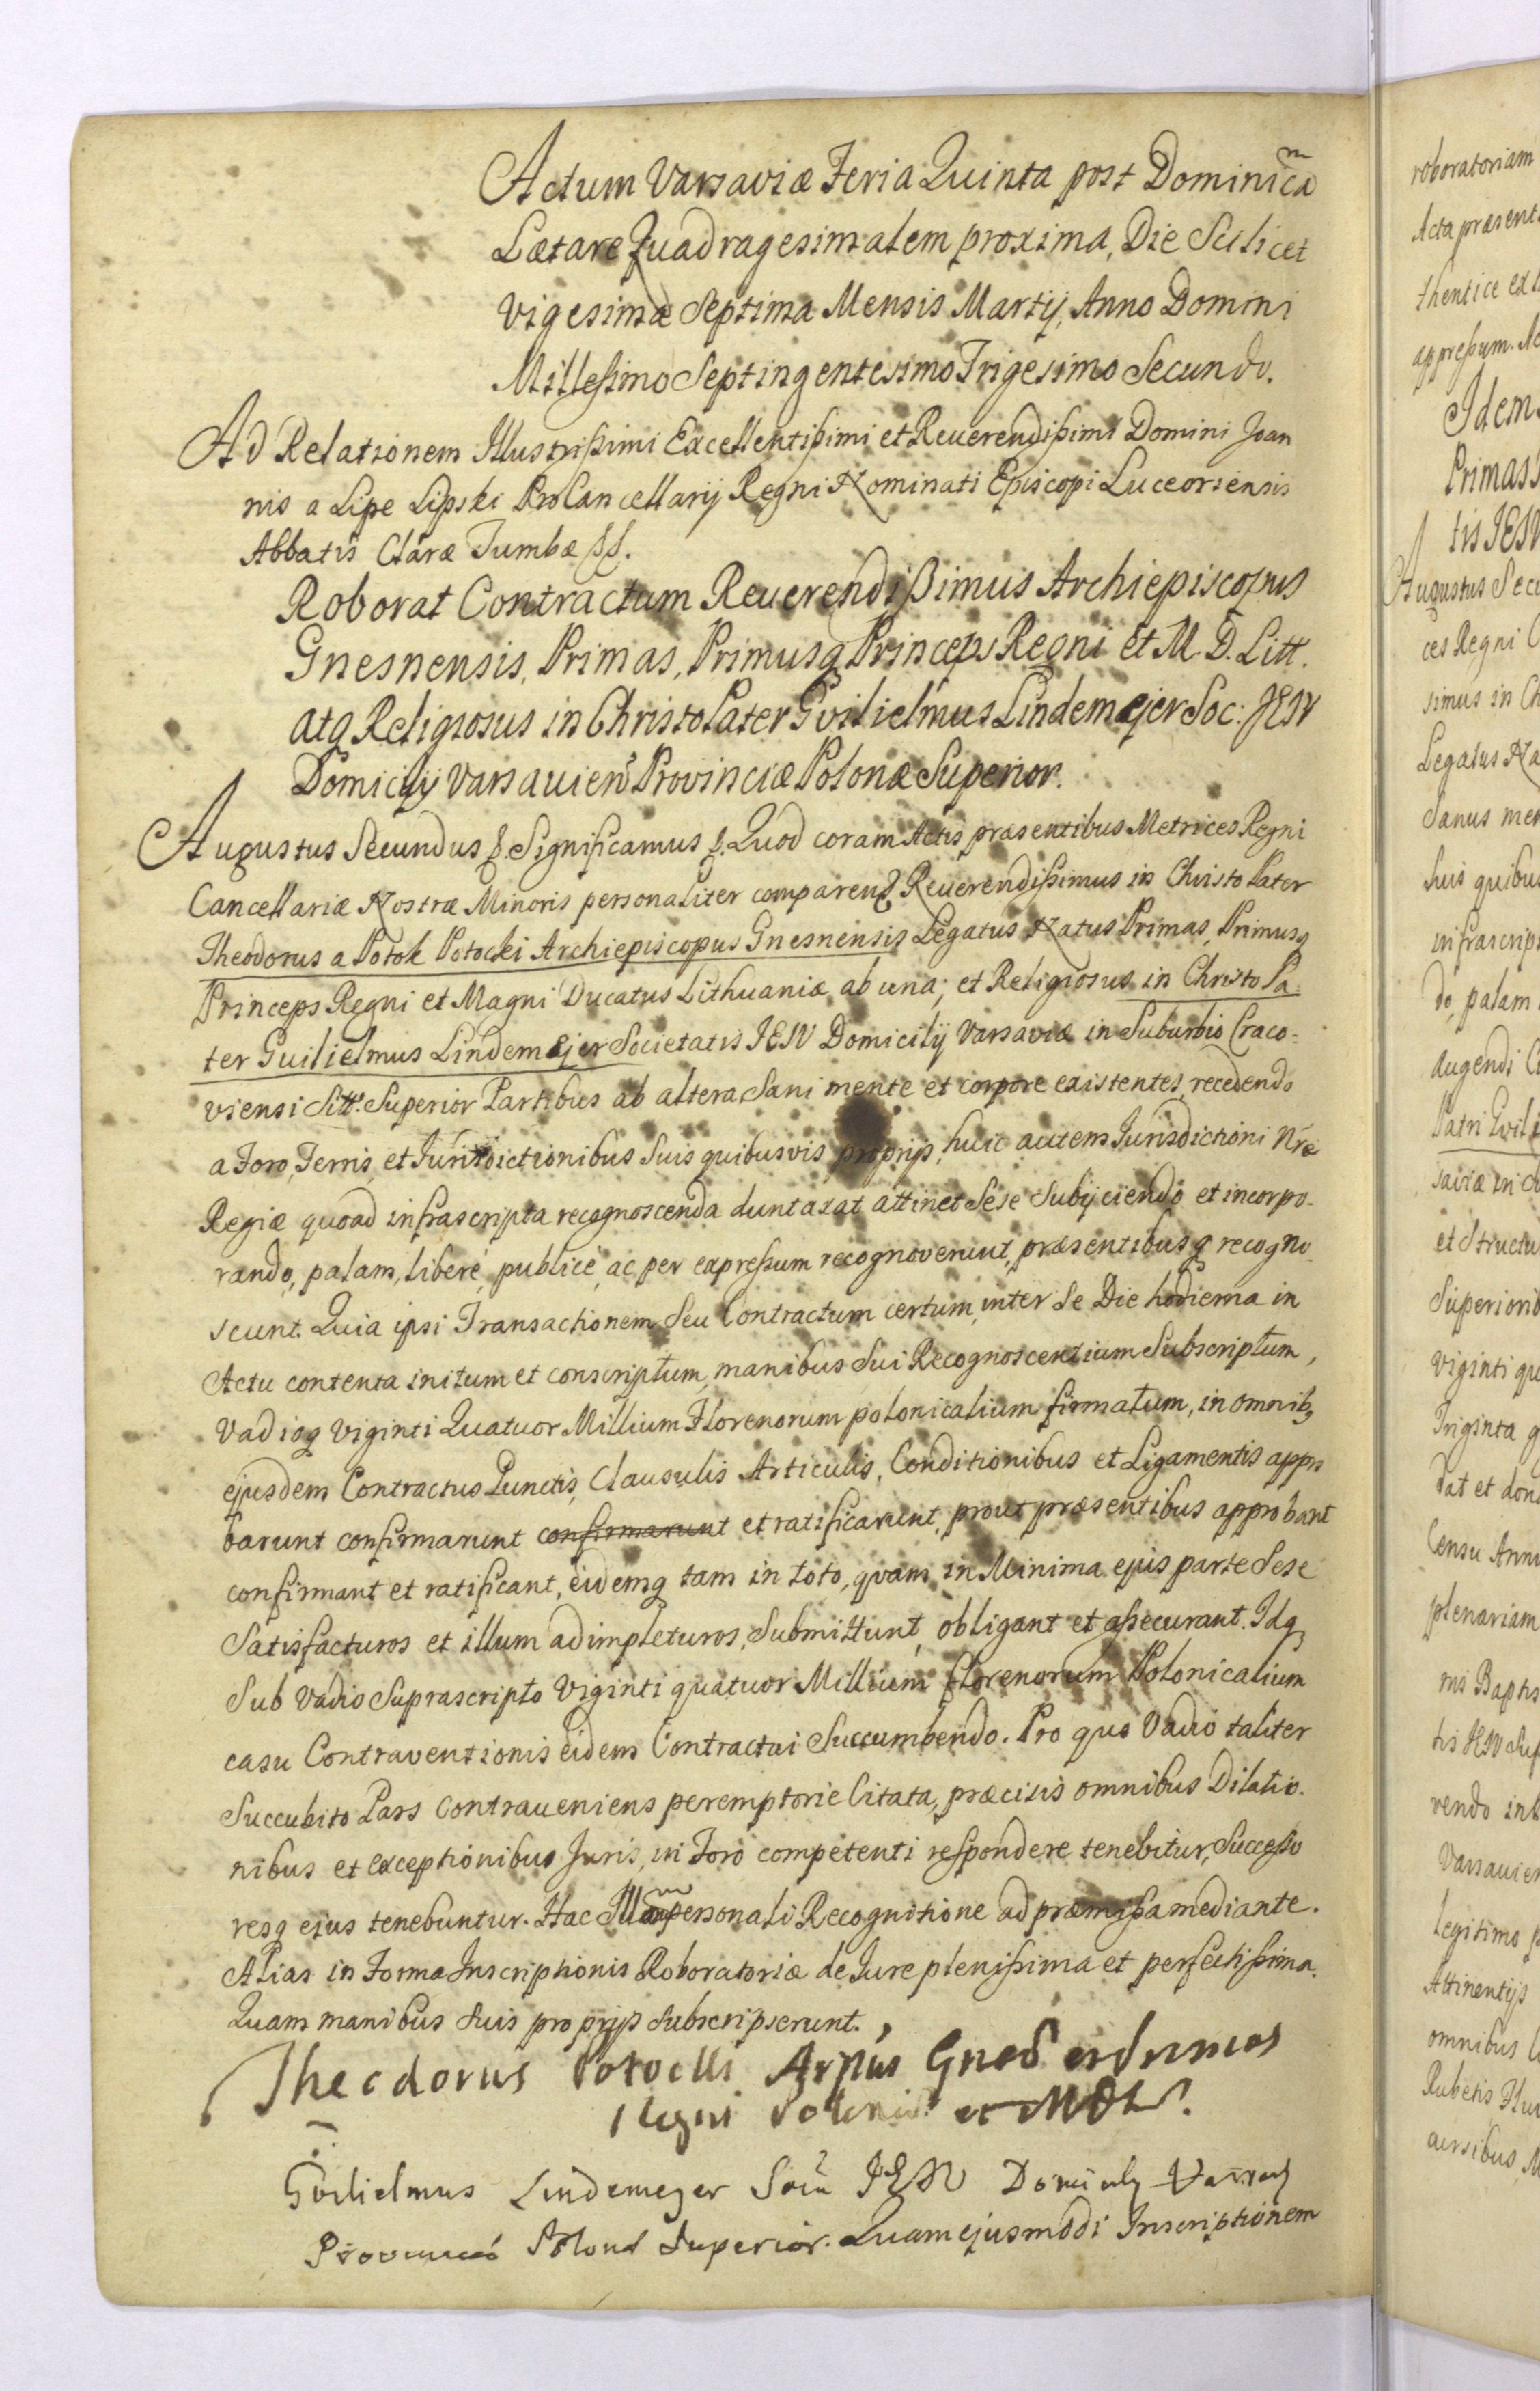 Actum Varsaviæ Feria Quinta post Dominicam
Lætare Quadragesimalem proxima, Die Scilicet
vigesima Septima Mensis Martij, Anno Domini
Millesimo Septingentesimo Trigesimo Secundo.
Ad Relationem Illustrissimi Excellentissimi et Reuerendissimi Domini Joan
nis a Lipe Lipski ProCancellarij Regni Nominati Episcopi Luceoriensis
Abbatis Claræ Tumbæ SS.
Roborat Contractum Reuerendissimus Archiepiscopus
Gnesnensis, Primas, Primusq Princeps Regni et M. D. Litt.
atq Religiosus in Christo Pater Gvilielmus Lindemejer Soc: JESV
Domicilij Varsavien Provinciæ Polonæ Superior.
Augustus Secundus &. Significamus &. Quod coram Actis præsentibus Metrices Regni
Cancellariæ Nostræ Minoris personaliter comparens Reuerendissimus in Christo Pater
Theodorus a Potok Potocki Archiepiscopus Gnesnensis Legatus Natus Primas, Primusq
Princeps Regni et Magni Ducatus Lithuaniæ ab una; et Religiosus in Christo Pa=
ter Guilielmus Lindemejer Societatis JESV Domicilij Varsaviæ in Suburbio Craco=
viensi Sitt: Superior Partibus ab altera Sani mente et corpore existentes, recedendo
a Foro, Terris, et Jurisdictionibus Suis quibusvis proprijs, huic autem Jurisdictioni Nræ
Regiæ quoad infrascripta recognoscenda duntaxat attinet Sese Subijciendo et incorpo-
rando, palam, liberé, publicè, ac per expressum recognoverunt, præsentibusq recogno
scunt. Quia ipsi Transactionem Seu Contractum certum, inter Se Die hodierna in
Actu contenta initum et conscriptum, manibus Sui Recognoscentium Subscriptum,
Vadioq Viginti Quatuor Millium Florenorum polonicalium firmatum, in omnibq
ejusdem Contractus Punctis, Clausulis Articulis, Conditionibus et Ligamentis appro
barunt confirmarunt confirmarunt et ratificarunt, prout præsentibus approbant
confirmant et ratificant, eidemq tam in toto, quam in Minima ejus parte Sese
Satisfacturos et illum adimpleturos, Submittunt, obligant et assecurant. Idq
Sub Vadio Suprascripto Viginti quatuor Millium florenorum Polonicalium
casu Contraventionis eidem Contractui Succumbendo. Pro quo Vadio taliter
Succubito Pars Contraueniens peremptorie Citata, præcisis omnibus Dilatio-
nibus et exceptionibus Juris, in Foro competenti respondere tenebitur, Successo
resq ejus tenebuntur. Hac personali Recognitione ad præmissa mediante.
Alias in Forma Inscriptionis Roboratoriæ de Jure plenissima et perfectissima.
Quam manibus Suis proprijs Subscripserunt.
Theodorus Potocki Arpus Gnes
Regni Poloniæ et MDL
Gvilielmus Lindemeyer JESV
Superior. Quam ejusmodi Inscriptionem
roboratoriam
Acta præsent
thentice
appressum.
Idem
Primas
tis JESV
Augustus Secu
ces Regni C
simus in Ch
Legatus Na
Sanus men
Suis quibus
infrascript
do, palam
augendi
Patri Gvil
saviæ in
et Structu
Superiorib
viginti qu
Triginta q
dat et don
Censu Annu
plenariam
nis Baptis
tis JESV Sup
vendo
Varsavien
legitimo p
Attinentijs
omnibus
Rubetis Flu